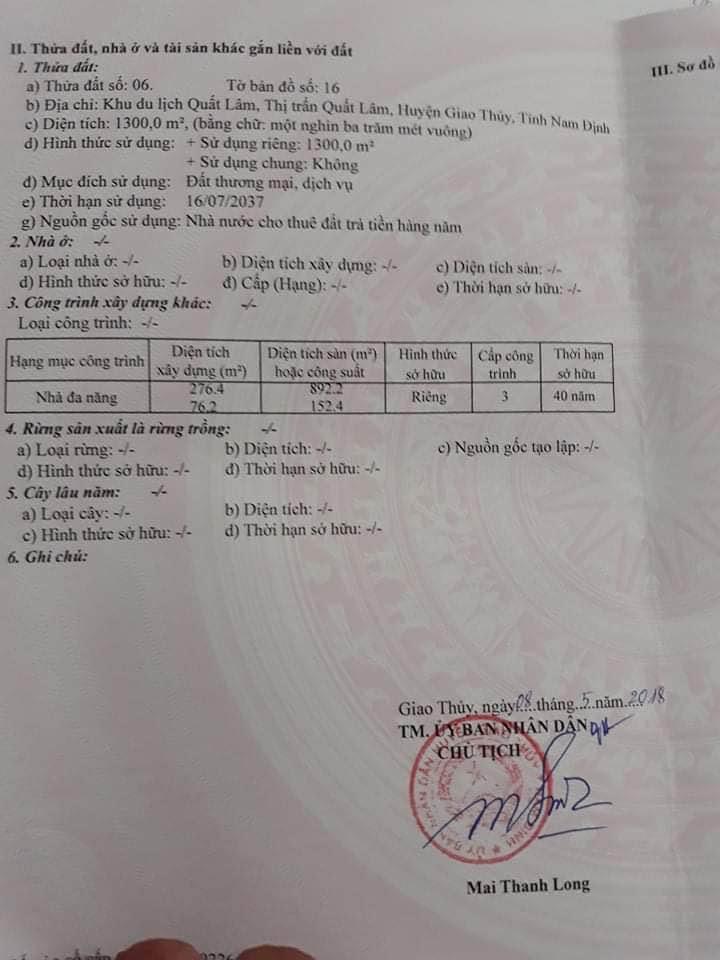 II. Thửa đất, nhà ở và tài sản khác gắn liền với đất
III. Sơ đồ
1. Thửa đất:
a) Thửa đất số: 06. Tờ bản đồ số: 16
b) Địa chỉ: Khu du lịch Quất Lâm, Thị trấn Quất Lâm, Huyện Giao Thủy, Tỉnh Nam Định
c) Diện tích: 1300,0 m², (bằng chữ: một nghìn ba trăm mét vuông)
d) Hình thức sử dụng: + Sử dụng riêng: 1300,0 m²
+ Sử dụng chung: Không
đ) Mục đích sử dụng: Đất thương mại, dịch vụ
e) Thời hạn sử dụng: 16/07/2037
g) Nguồn gốc sử dụng: Nhà nước cho thuê đất trả tiền hàng năm
2. Nhà ở: -/-
a) Loại nhà ở: -/- b) Diện tích xây dựng: -/- c) Diện tích sàn: -/-
d) Hình thức sở hữu: -/- đ) Cấp (Hạng): -/- e) Thời hạn sở hữu: -/-
3. Công trình xây dựng khác: -/-
Loại công trình: -/-
Hạng mục công trình Diện tích xây dựng (m²) Diện tích sàn (m²) hoặc công suất Hình thức sở hữu Cấp công trình Thời hạn sở hữu
Nhà đa năng 276.4 892.2 Riêng 3 40 năm
76.2 152.4
4. Rừng sản xuất là rừng trồng: -/-
a) Loại rừng: -/- b) Diện tích: -/- c) Nguồn gốc tạo lập: -/-
d) Hình thức sở hữu: -/- đ) Thời hạn sở hữu: -/-
5. Cây lâu năm: -/-
a) Loại cây: -/- b) Diện tích: -/-
c) Hình thức sở hữu: -/- d) Thời hạn sở hữu: -/-
6. Ghi chú:
Giao Thủy, ngày 08 tháng 5 năm 2018
TM. ỦY BAN NHÂN DÂN
CHỦ TỊCH
Mai Thanh Long